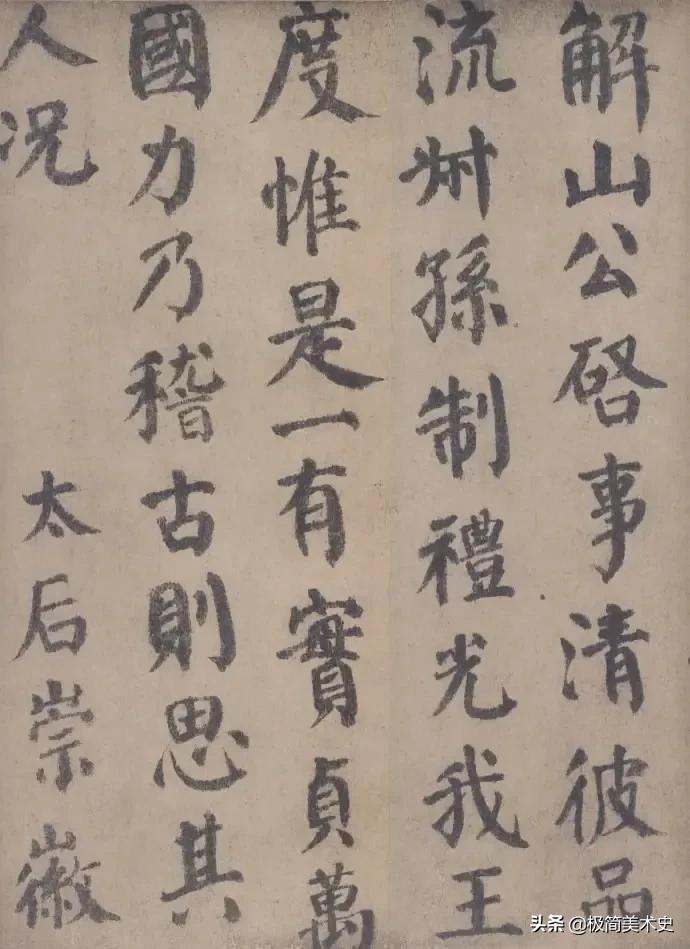 解山公啓事清彼品
流叔孫制禮光我王
度惟是一有實貞萬
國力乃稽古則思其
人况 太后崇徽
头条 @极简美术史